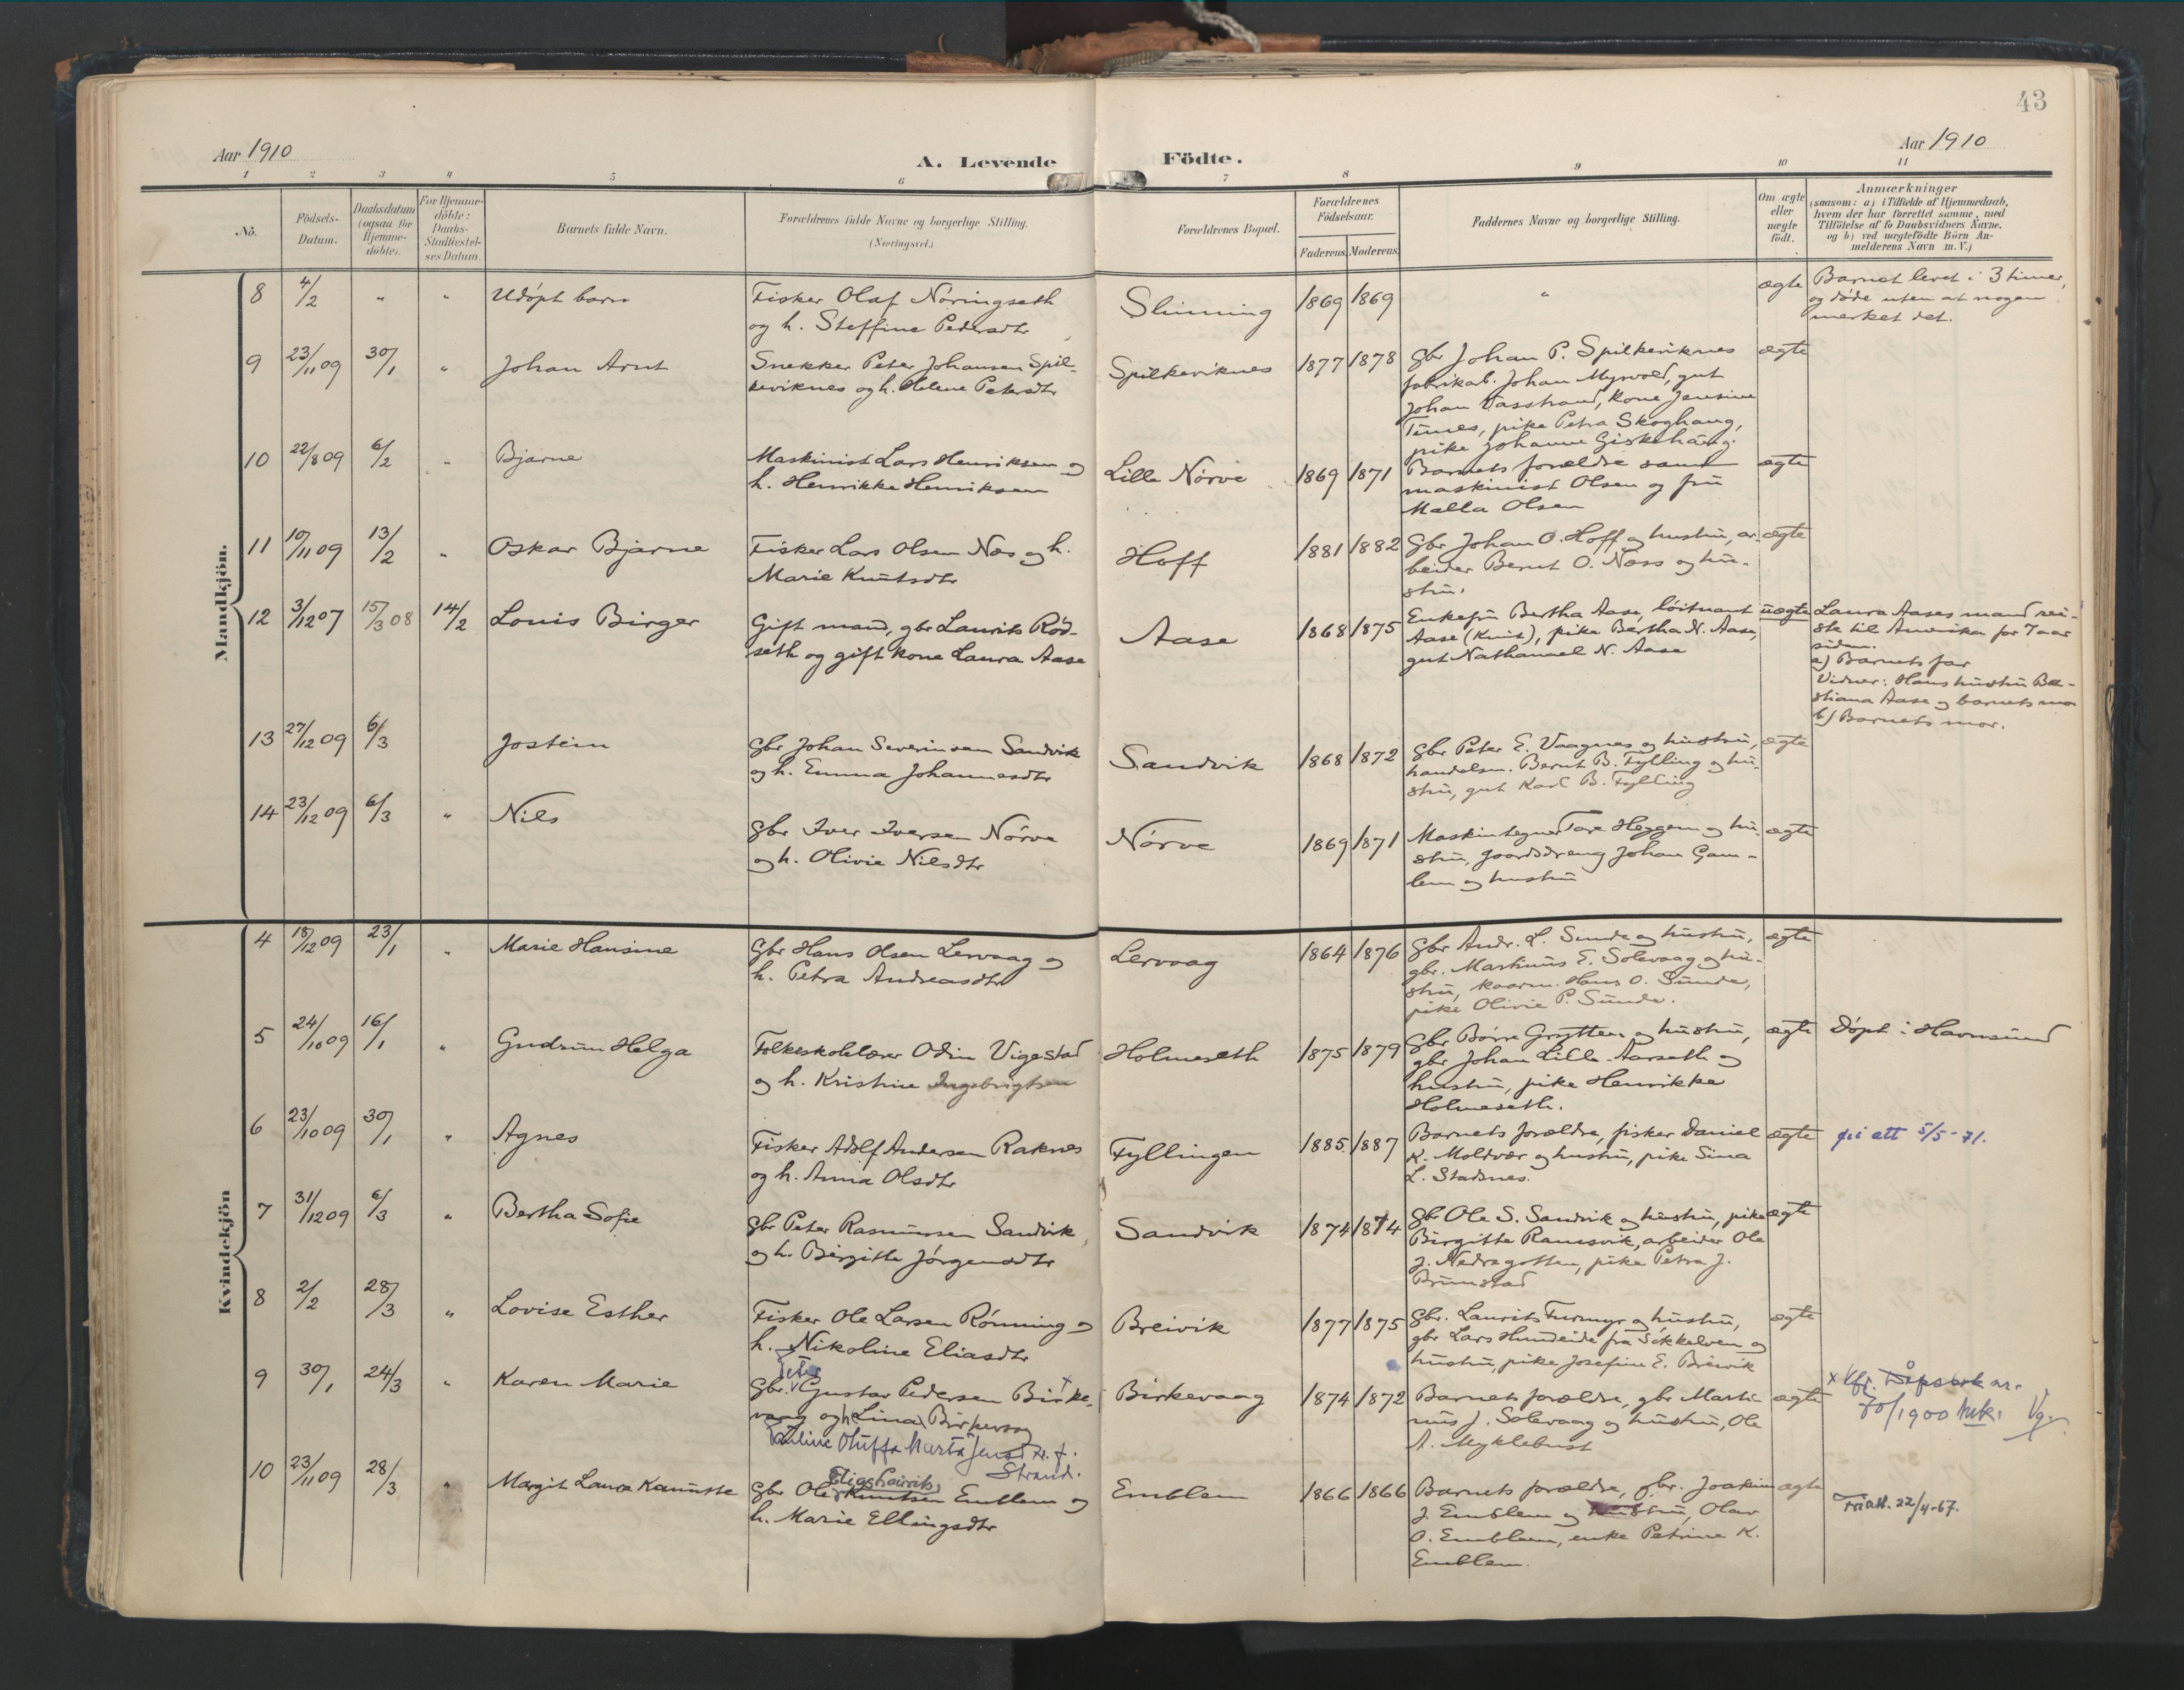 43
Aar 1910
A. Levende Födte.
Aar 1910
1 2 3 4 5 6 7 8 9 10 11
No.
Födsels-Datum.
Daabsdatum (ogsaa for Hjemme-döbte).
For Hjemme-döbte: Daabs-Stadfæstel-ses Datum.
Barnets fulde Navn.
Forældrenes fulde Navne og borgerlige Stilling.
(Næringsvei.)
Forældrenes Bopæl.
Forældrenes Födselsaar.
Faderens. Moderens.
Faddernes Navne og borgerlige Stilling.
Om ægte eller uægte födt.
Anmærkninger
(saasom: a) i Tilfælde af Hjemmedaab,
hvem der har forrettet samme, med
Tilföielse af to Daabsvidners Navne,
og b) ved uægtefödte Börn An-
melderens Navn m. V.)
Mandkjön.
8 4/2 " " Udöpt barn
Fisker Olaf Nöringseth
og h. Steffine Pedersdtr
Slinning 1869 1869 " ægte
Barnet levet i 3 timer,
og døde uten at nogen
merket det.
9 23/11 09 30/1 " Johan Arnt
Snekker Peter Johansen Spil-
keviknes og h. Helene Petersdtr
Spilkeviknes 1877 1878
Gbr Johan P. Spilkeviknes
fabrikab. Johan Myrvold, gut
Johan Vasstrand, kone Jensine
Tünes, pike Petra Skoghaug,
pike Johanne Giskehaug.
ægte
10 22/8 09 6/2 " Bjarne
Maskinist Lars Henriksen og
h. Henrikke Henriksen
Lille Nörve 1869 1871
Barnets forældre samt
maskinist Olsen og frü
Malla Olsen
ægte
11 10/11 09 13/2 " Oskar Bjarne
Fisker Lars Olsen Næs og h.
Marie Knütsdtr
Hoff 1881 1882
Gbr Johan O. Hoff og hustrü, ar-
beider Bernt O. Næss og hü-
strü.
ægte
12 3/12 07 15/3 08 14/2 Louis Birger
Gift mand, gbr Laurits Röd-
seth og gift kone Laura Aase
Aase 1868 1875
Enkefrü Bertha Aase, löitnant
Aase (Knüt), pike Bertha N. Aase,
gut Nathanael N. Aase
üægte
Laura Aases mand rei-
ste til Amerika for 7 aar
siden.
a) Barnets far
Vidner: Hans hüstrü Ba-
stiana Aase og barnets mor
b) Barnets mor.
13 27/12 09 6/3 Jostein
Gbr Johan Severinsen Sandvik
og h. Emma Johannesdtr
Sandvik 1868 1872
Gbr Peter E. Vaagnes og hüstrü,
handelsm. Bernt B. Fylling og hü-
strü, gut Karl B. Fylling
ægte
14 23/12 09 6/3 " Nils
Gbr Iver Iversen Nörve
og h. Olivie Nilsdtr
Nörve 1869 1871
Maskintegner Tore Heggem og hü-
strü, gaardsdreng Johan Gam-
lem og hustrü
ægte
Kvindekjön
4 18/12 09 23/1 " Marie Hansine
Gbr Hans Olsen Lervaag og
h. Petra Andreasdtr
Lervaag 1864 1876
Gbr Andr. L. Sunde og hustrü,
gbr. Martinüs E. Solevaag og hü-
strü, kaarm. Hans O. Sünde,
pike Olivie P. Sünde.
ægte
5 24/10 09 16/1 " Gudrün Helga
Folkeskolelærer Odin Vigestad
og h. Kristine Ingebrigtsen
Holmeseth 1875 1879
Gbr Börre Grytten og hüstrü,
gbr Johan Lille-Aarseth og
hustrü, pike Henrikke
Holmeseth.
ægte Döpt i Havnsund
6 23/10 09 30/1 " Agnes
Fisker Adolf Andersen Raknes
og h. Anna Olsdtr
Fyllingen 1885 1887
Barnets forældre, fisker Daniel
K. Moldvær og hustrü, pike Sina
L. Stadsnes.
ægte fri att 5/5-71.
7 31/12 09 6/3 " Bertha Sofie
Gbr Peter Rasmüssen Sandvik
og h. Birgitte Jörgensdtr
Sandvik 1874 1874
Gbr Ole S. Sandvik og hüstrü, pike
Birgitte Ramsvik, arbeider Ole
J. Nedregotten, pike Petra J.
Brünstad
ægte
8 2/2 28/3 " Lovise Esther
Fisker Ole Larsen Rönning og
h. Nikoline Eliasdtr
Breivik 1877 1875
Gbr. Laurits Furmyr og hustrü,
gbr Lars Hundeide fra Sökkelven og
hüstrü, pike Josefine E. Breivik
ægte
9 30/1 24/3 " Karen Marie
Peter
Gbr. Gustav Pedersen Birke-
vaag og h. Lina Birkevaag
Pauline Oluffa Marta Jensdtr. f.
Strand.
Birkevaag 1874 1872
Barnets forældre, gbr Marti-
nüs J. Solevaag og hüstrü, Ole
A. Myklebust
ægte
x Kfr. Dåpsbok nr.
70/1900 mk. Vg.
10 23/11 09 28/3 " Margit Laura Kanütte
Elias Lavrits
Gbr Ole Knutsen Emblem og
h. Marie Ellingsdtr
Emblem 1866 1866
Barnets forældre, gbr. Joakim
J. Emblem og hustrü, Olav
O. Emblem, enke Petrine K.
Emblem.
ægte
Friatt. 22/4-67.